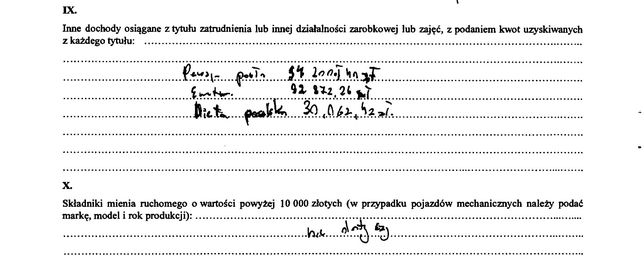 IX.
Inne dochody osiągane z tytułu zatrudnienia lub innej działalności zarobkowej lub zajęć, z podaniem kwot uzyskiwanych
z każdego tytułu:
92 872,26 zł
Dieta 30.062,42 zł.
X.
Składniki mienia ruchomego o wartości powyżej 10 000 złotych (w przypadku pojazdów mechanicznych należy podać
markę, model i rok produkcji):
nie dotyczy